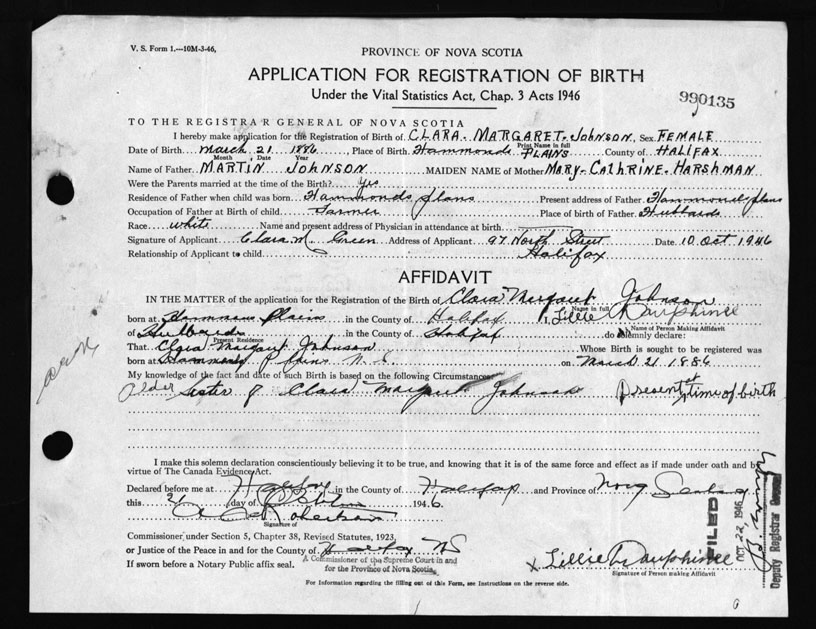 V. S. Form 1.—10M-3-46.
PROVINCE OF NOVA SCOTIA
APPLICATION FOR REGISTRATION OF BIRTH
Under the Vital Statistics Act, Chap. 3 Acts 1946
990135
TO THE REGISTRAR GENERAL OF NOVA SCOTIA
I hereby make application for the Registration of Birth of CLARA. MARGARET. JOHNSON, Sex FEMALE
Print Name in full
Date of Birth March 21 1886, Place of Birth Hammonds PLAINS County of HALIFAX
Month Date Year
Name of Father MARTIN JOHNSON MAIDEN NAME of Mother MARY. CATHRINE. HARSHMAN
Were the Parents married at the time of the Birth? yes
Residence of Father when child was born Hammonds plans Present address of Father Hammonds plans
Occupation of Father at Birth of child Farmer Place of birth of Father Hubbards
Race white Name and present address of Physician in attendance at birth
Signature of Applicant Clara M. Green Address of Applicant 97 North Street Date 10 Oct 1946
Relationship of Applicant to child Halifax
AFFIDAVIT
IN THE MATTER of the application for the Registration of Birth of Clara Margaret Johnson
Name in full
born at Hammonds Plains in the County of Halifax I, Lillie Dauphinee
Name of Person Making Affidavit
of Hubbards in the County of Halifax do solemnly declare:
Present Residence
That Clara Margaret Johnson Whose Birth is sought to be registered was
born at Hammonds Plains N. S. on March 21 1886
My knowledge of the fact and date of such Birth is based on the following Circumstances
older Sister of Clara Margaret Johnson present at time of birth
I make this solemn declaration conscientiously believing it to be true, and knowing that it is of the same force and effect as if made under oath and by
virtue of The Canada Evidence Act.
Declared before me at Halifax in the County of Halifax and Province of Nova Scotia
this 21 day of October 1946
Robertson
Signature of
Commissioner under Section 5, Chapter 38, Revised Statutes, 1923,
or Justice of the Peace in and for the County of Halifax NS
A Commissioner of the Supreme Court in and
for the Province of Nova Scotia.
If sworn before a Notary Public affix seal.
x Lillie Dauphinee
Signature of Person making Affidavit
For Information regarding the filling out of this Form, see Instructions on the reverse side.
FILED
OCT 22 1946
Deputy Registrar General